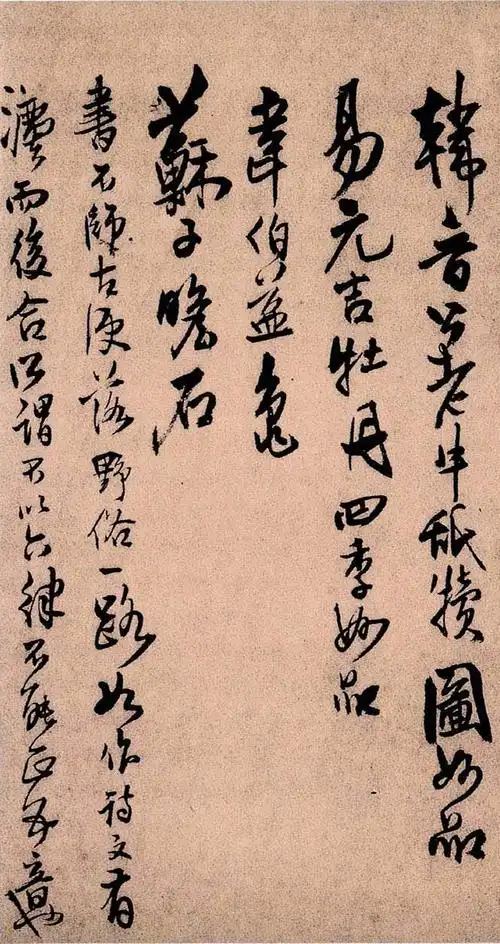 韓晋公老牛舐犢圖妙品
易元吉牡丹四季妙品
韋伯益龜
蘇子瞻石
書不師古便落野俗一路如作詩文有
淵而後合所謂不以六律不能正五音也